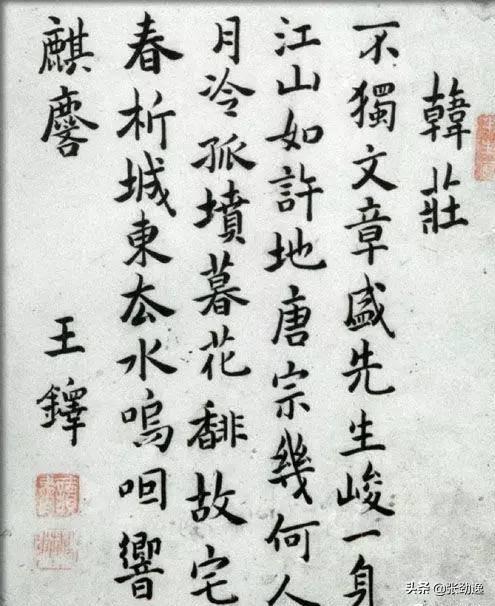 韓莊
不獨文章盛先生峻一身
江山如許地唐宗幾何人
月冷孤墳暮花馡故宅
春析城東厺水嗚咽響
麒麐 王鐸
头条 @张劲逸